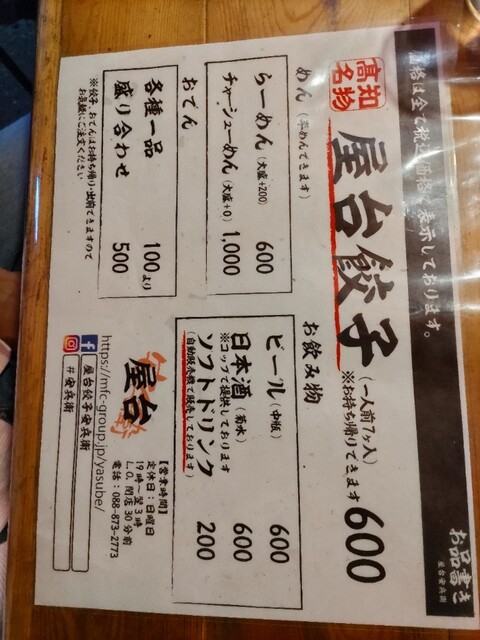 お品書き
屋台安兵衛
価格は全て税込価格で表示しております。
高知名物
屋台餃子(一人前7ヶ入) 600
※お持ち帰りできます
めん(平めんできます)
らーめん(大盛+200) 600
チャーシューめん(大盛+0) 1,000
おでん
各種一品 100より
盛り合わせ 500
※餃子、おでんはお持ち帰り・出前できますので
お気軽にご注文ください
お飲み物
ビール(中瓶) 600
日本酒(菊水) 600
※コップで提供しております
ソフトドリンク 200
(自動販売機で販売しております)
屋台
【営業時間】
定休日:日曜日
19時~翌3時
L.O. 閉店30分前
電話:088-873-2773
https://mfc-group.jp/yasube/
屋台餃子安兵衛
#安兵衛